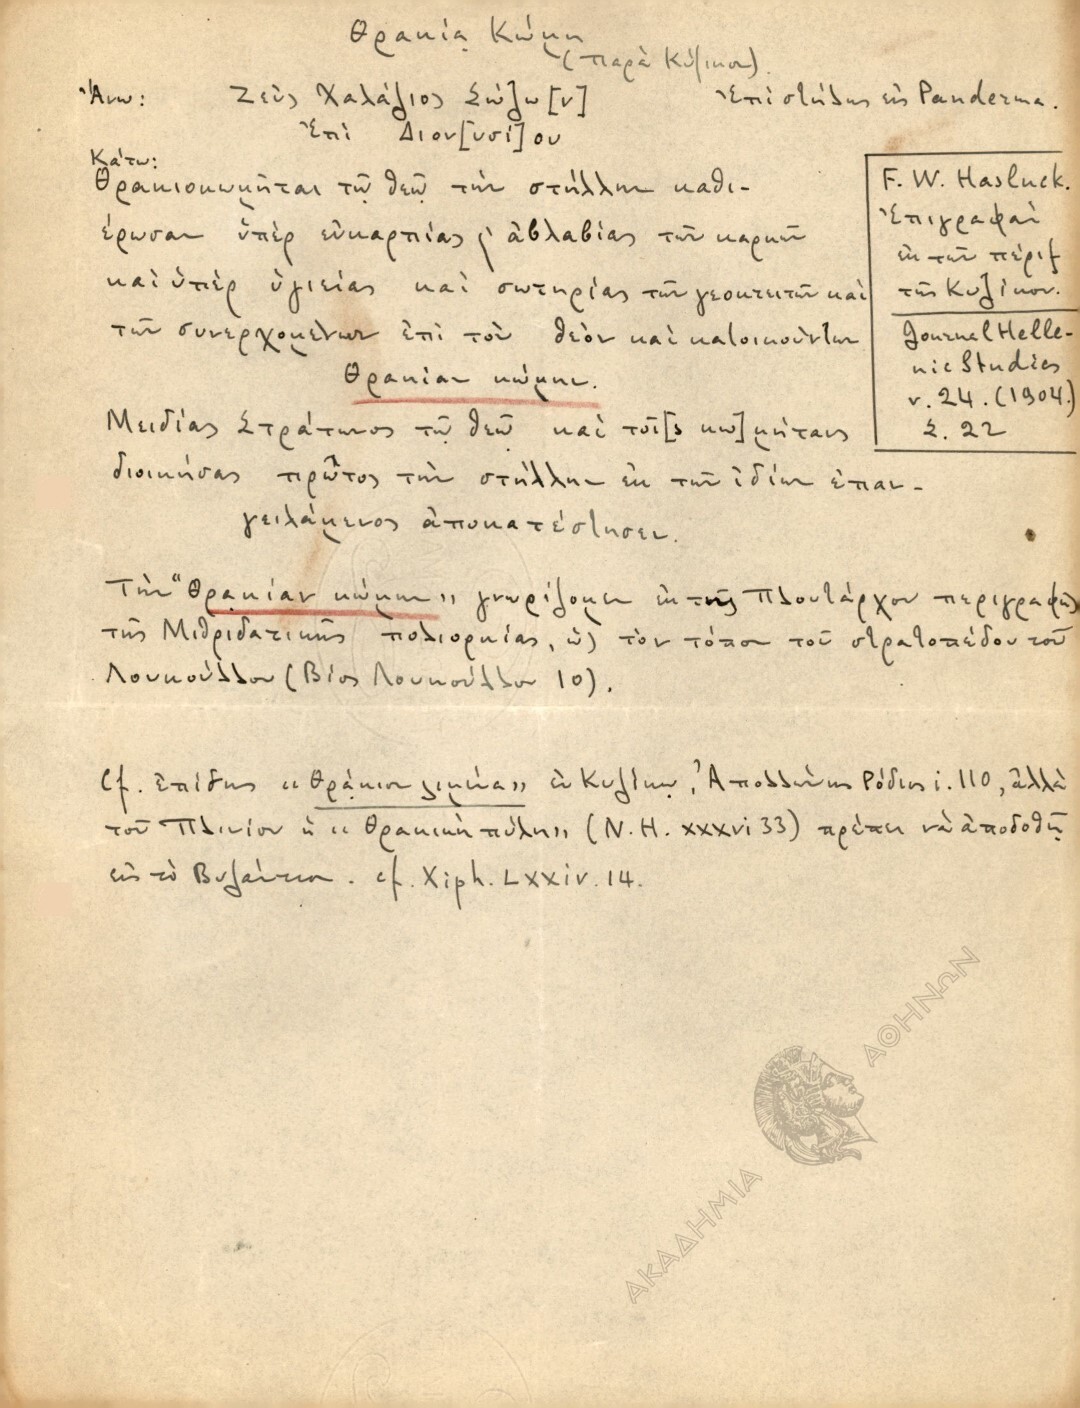 Θρακίᾳ Κώμῃ
(παρὰ Κύζικον).
Ἄνω: Ζεὺς Χαλάζιος Σώζω[ν] Ἐπὶ στήλης εἰς Panderma.
Ἐπὶ Διον[υσί]ου
Κάτω:
Θρακιοκωμῆται τῷ θεῷ τὴν στήλλην καθι-
έρωσαν ὑπὲρ εὐκαρπίας ϗ ἀβλαβίας τῶν καρπῶν
καὶ ὑπὲρ ὑγιείας καὶ σωτηρίας τῶν γεοκτειτῶν καὶ
τῶν συνερχομένων ἐπὶ τὸν θεὸν καὶ κατοικούντων
Θρακίαν κώμην.
Μειδίας Στράτωνος τῷ θεῷ καὶ τοῖ[ς κω]μήταις
διοικήσας πρῶτος τὴν στήλλην ἐκ τῶν ἰδίων ἐπαν-
γειλάμενος ἀποκατέστησεν.
F. W. Hasluck.
Ἐπιγραφαὶ
ἐκ τῶν πέριξ
τῆς Κυζίκου.
Journal Helle-
nic Studies
v. 24. (1904.)
Σ. 22
Τὴν "Θρακίαν κώμην" γνωρίζομεν ἐκ τῆς Πλουτάρχου περιγραφῆς
τῆς Μιθριδατικῆς πολιορκίας, ὡς τὸν τόπον τοῦ στρατοπέδου τοῦ
Λουκούλλου (Βίος Λουκούλλου 10).
Cf. ἐπίσης «Θρᾴκιον λιμένα» ἐν Κυζίκῳ, Ἀπολλώνιος Ρόδιος i. 110, ἀλλὰ
τοῦ Πλινίου ἡ «Θρακικὴ πύλη» (N. H. xxxvi 33) πρέπει νὰ ἀποδοθῇ
εἰς τὸ Βυζάντιον. cf. Xiph. Lxxiv. 14.
ΑΚΑΔΗΜΙΑ ΑΘΗΝΩΝ